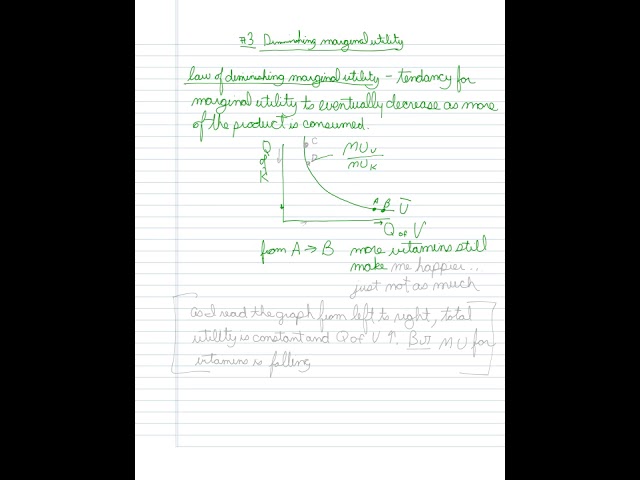 #3 Diminishing marginal utility
law of deminishing marginal utility - tendancy for
marginal utility to eventually decrease as more
of the product is consumed.
Q of K
C
D
MUv
MUK
A B
U
→ Q of V
from A → B more vitamins still
make me happier...
just not as much
as I read the graph from left to right, total
utility is constant and Q of V ↑. But MU for
vitamins is falling